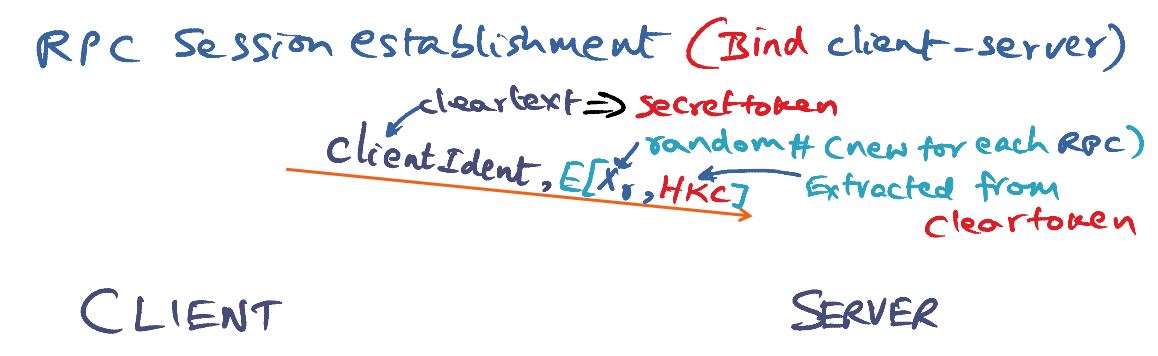 RPC Session establishment (Bind client-server)
cleartext ⇒ secrettoken
ClientIdent, E[Xr, HKC]
random # (new for each RPC)
Extracted from
cleartoken
CLIENT
SERVER